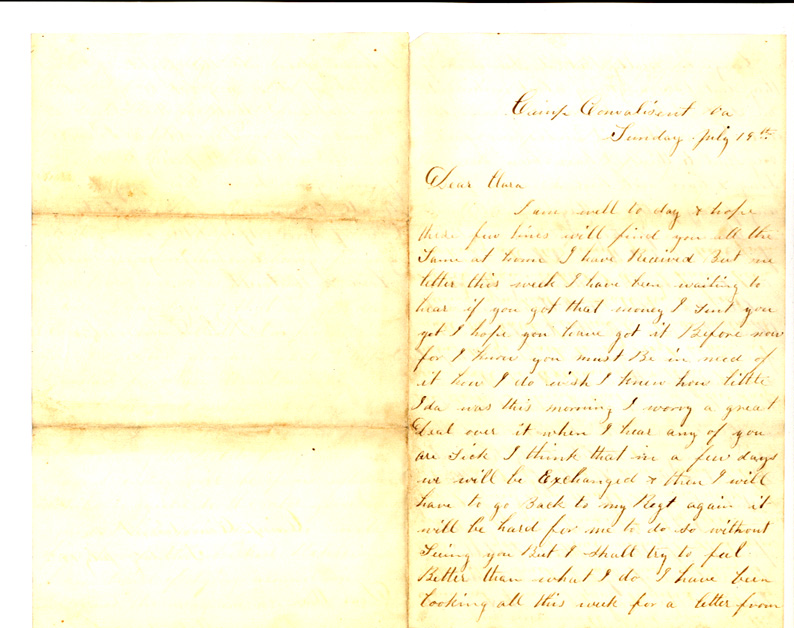 Camp Convalisent Va
Sunday July 19th
Dear Clara
I am well to day & hope
these few lines will find you all the
Same at home I have Received But one
letter this week I have been waiting to
hear if you got that money I Sent you
yet I hope you have got it Before now
for I know you must Be in need of
it how I do wish I knew how little
Ida was this morning I worry a great
deal over it when I hear any of you
are Sick I think that in a few days
we will be Exchanged & then I will
have to go Back to my Regt again it
will be hard for me to do so without
Seing you But I Shall try to feel
Better than what I do I have been
looking all this week for a letter from